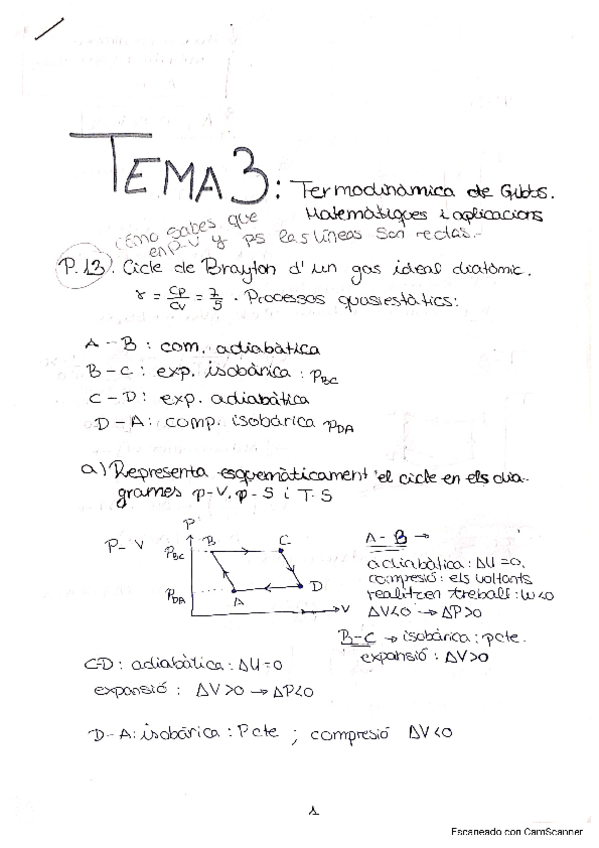 TEMA 3: Termodinàmica de Gibbs.
Matemàtiques i aplicacions
cómo sabes que
en p-v y ps las líneas son rectas.-
P.13. Cicle de Brayton d'un gas ideal diatòmic.
γ = Cp/Cv = 7/5 . Processos quasiestàtics:
A - B : com. adiabàtica
B - C : exp. isobàrica : PBC
C - D : exp. adiabàtica
D - A : comp. isobárica PDA
a) Representa esquemàticament el cicle en els dia-
grames p-V, p-S i T-S
P- V
P
PBC
B
C
PDA
A
D
V
A - B →
adiabàtica : ΔU = 0.
compresió : els voltants
realitzen treball : W<0
ΔV<0 → ΔP>0
B-C → isobàrica : pcte.
expansió : ΔV>0
CD : adiabàtica : ΔU = 0
expansió : ΔV>0 → ΔP<0
D-A: isobárica : Pcte ; compresió ΔV<0
1
Escaneado con CamScanner